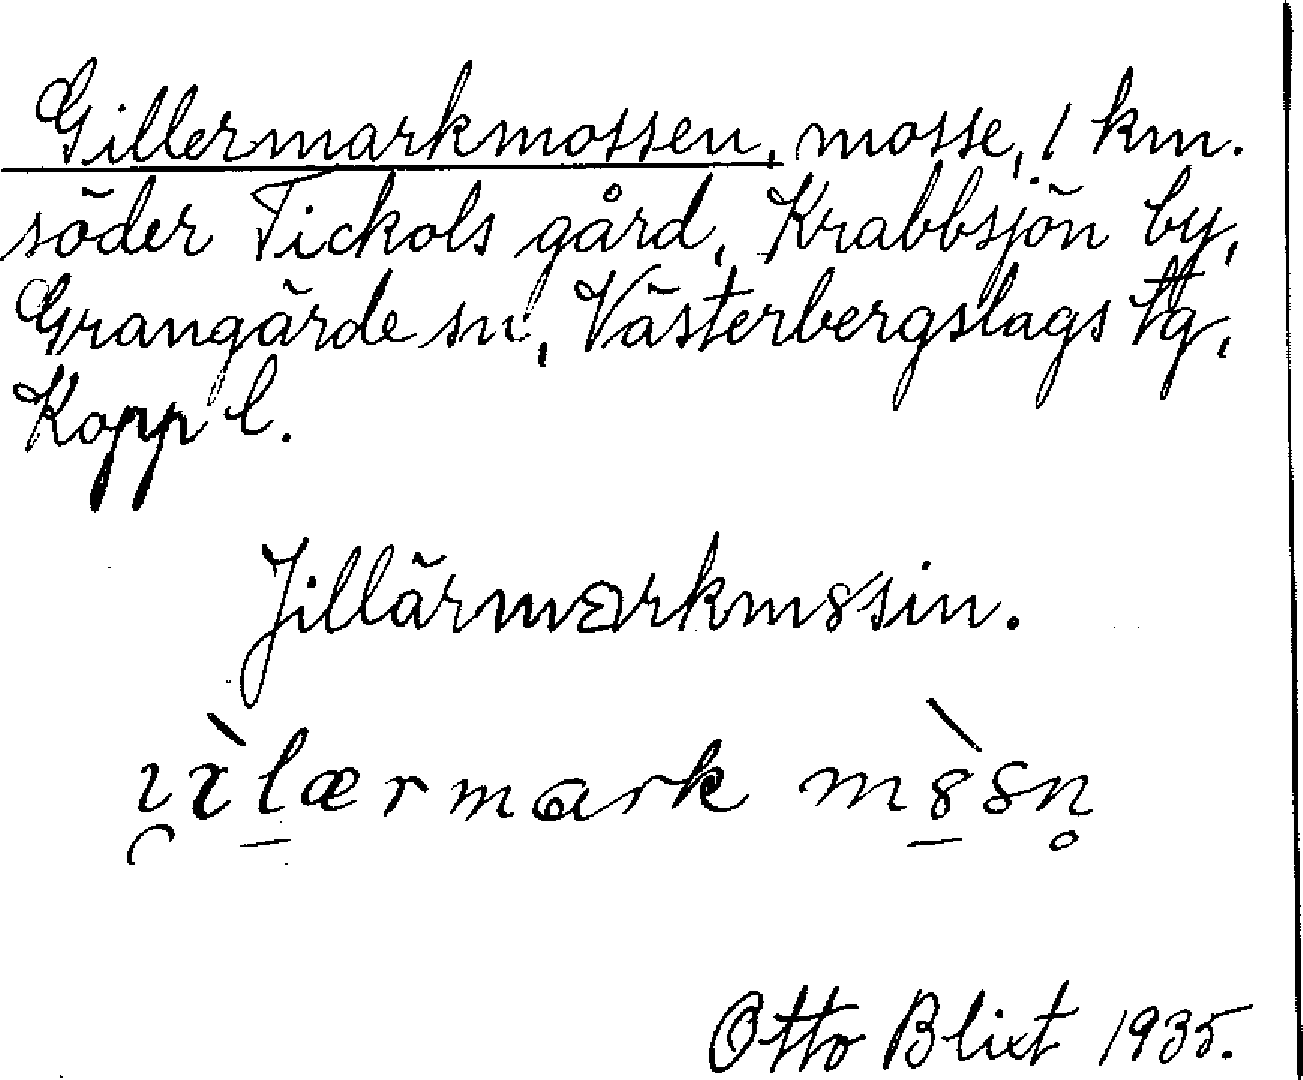 Gillermarkmossen, mosse, 1 km.
söder Tickols gård, Krabbsjön by,
Grangärde sn, Västerbergslags tg,
Kopp l.
Jillärmarkmssin.
Otto Blixt 1935.